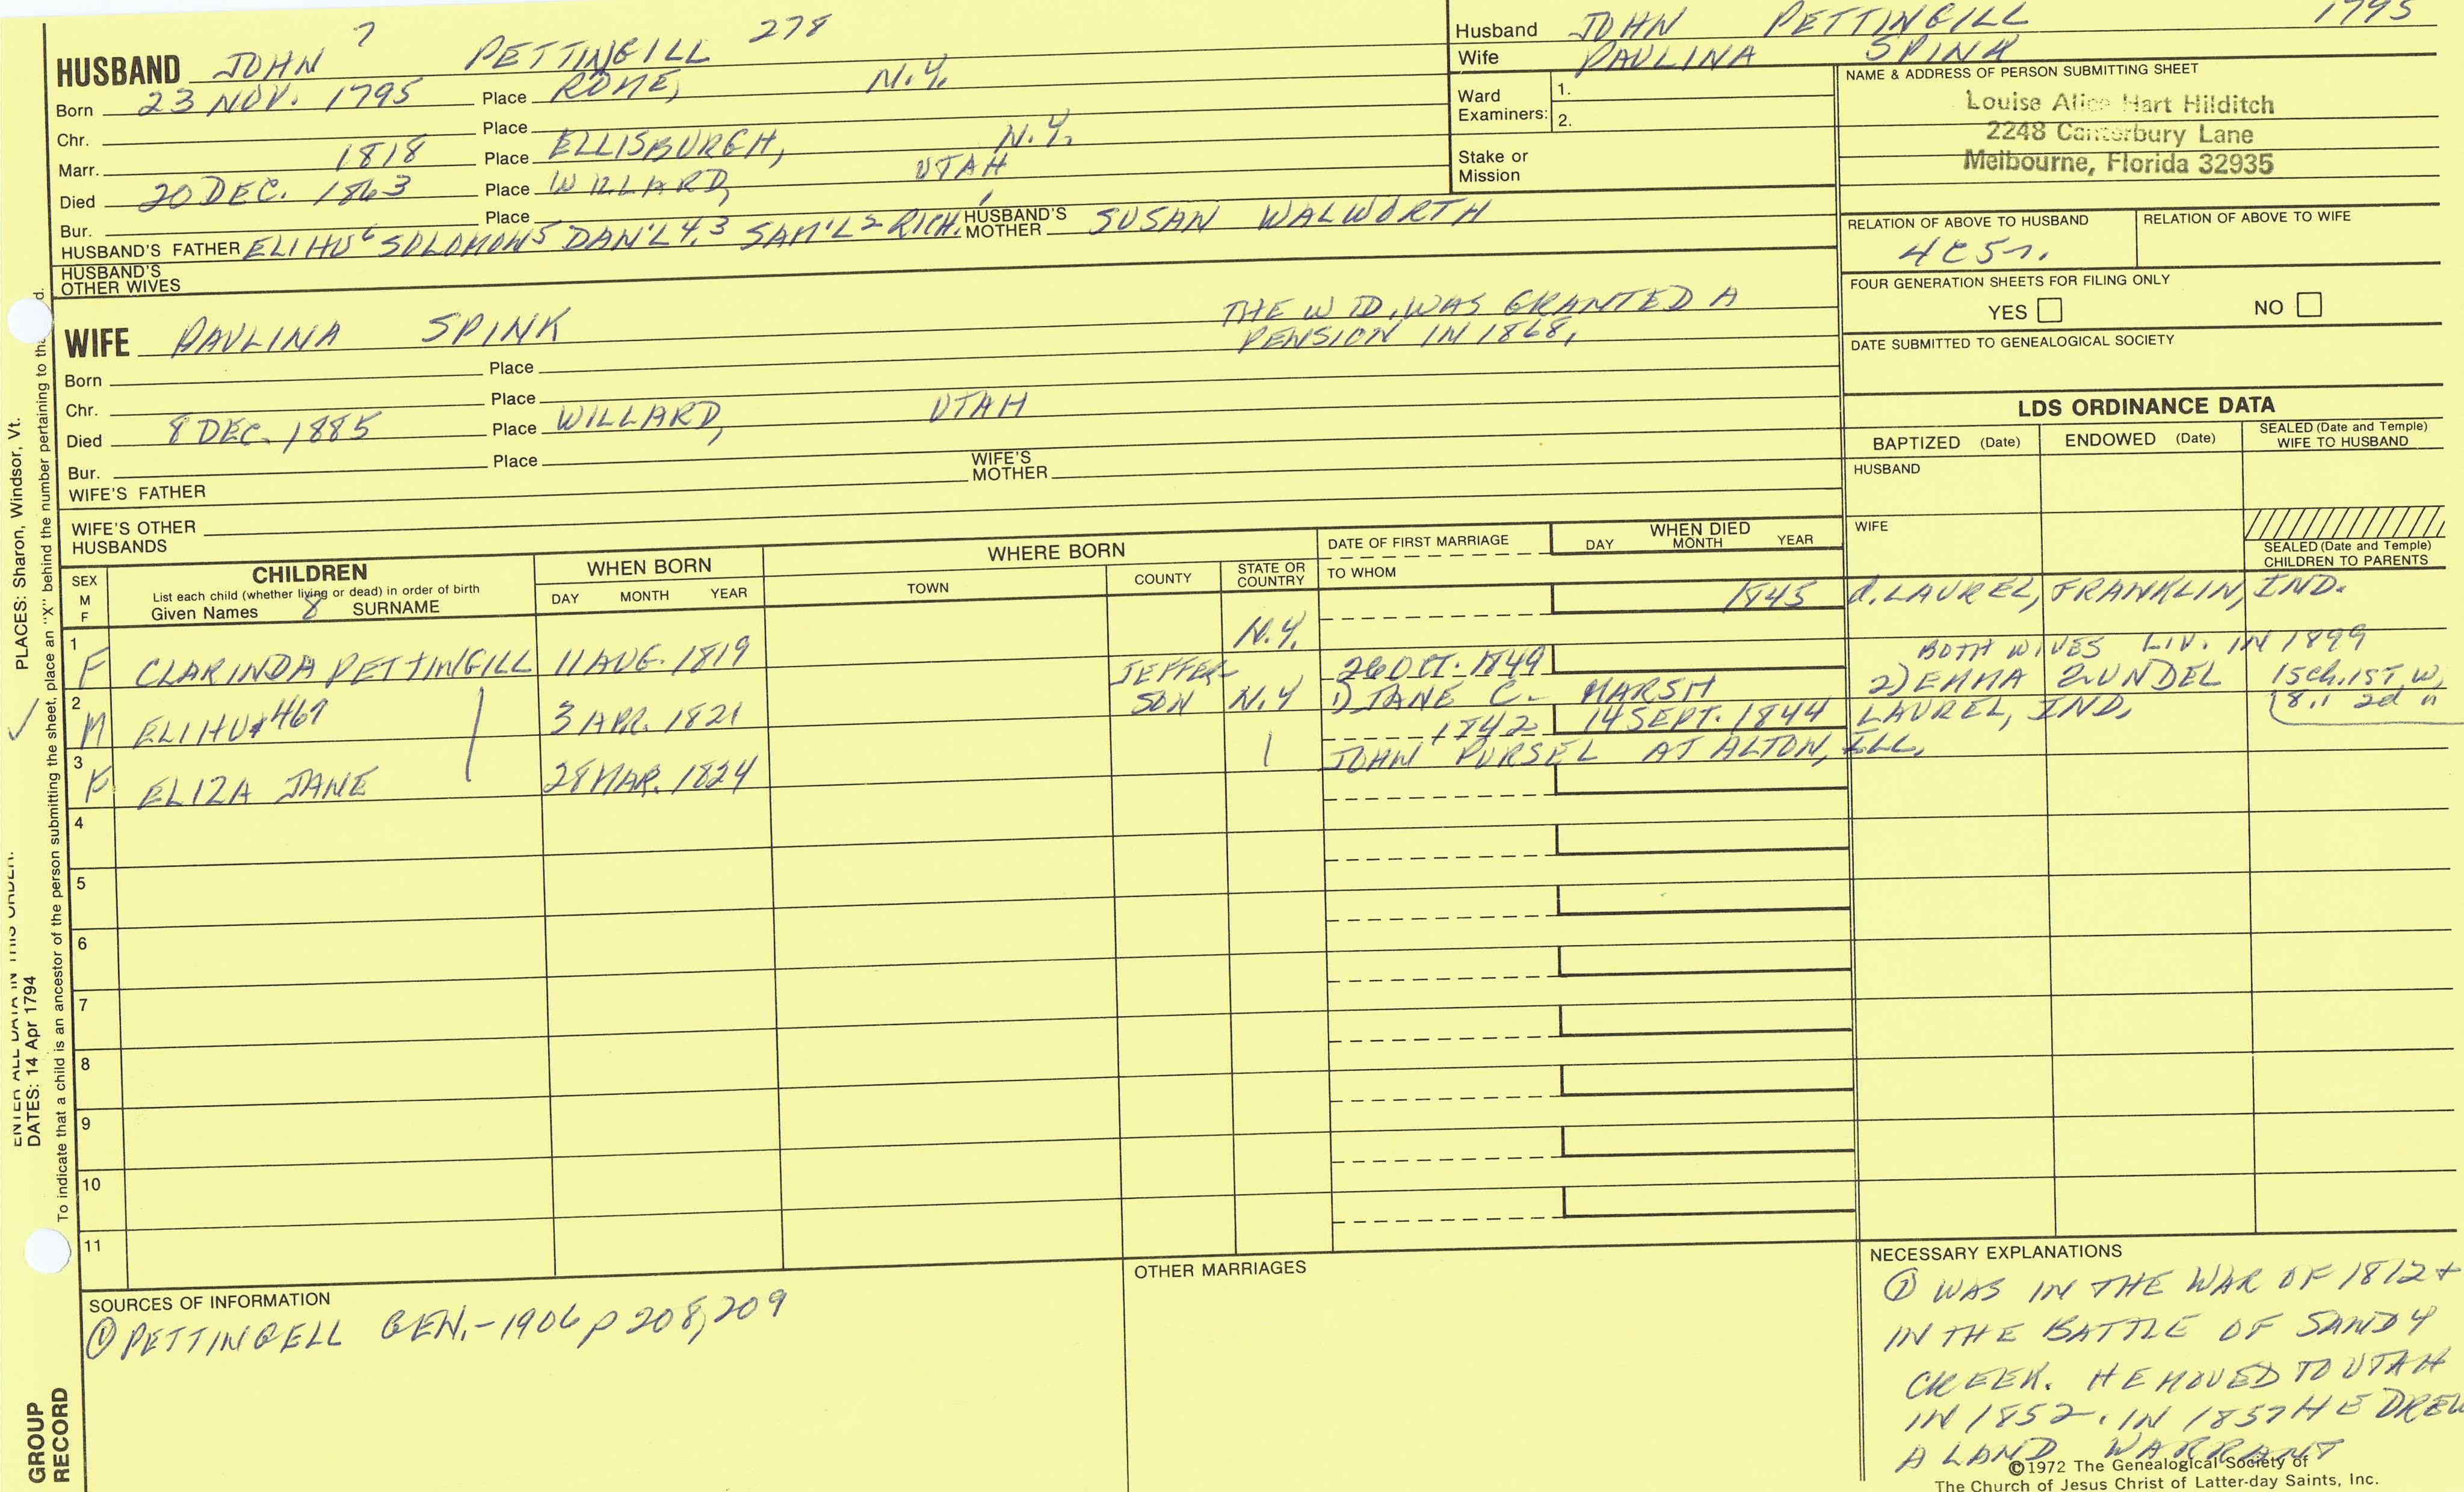 HUSBAND JOHN 7 PETTINGILL 278
Born 23 NOV. 1795 Place ROME, N.Y.
Chr. Place
Marr. 1818 Place ELLISBURGH, N.Y.
Died 20 DEC. 1863 Place WILLARD, UTAH
Bur. Place
HUSBAND'S FATHER ELIHU 6 SOLOMON 5 DAN'L 4,3 SAM'L 2 RICH. 1 HUSBAND'S MOTHER SUSAN WALWORTH
HUSBAND'S OTHER WIVES
Husband JOHN PETTINGILL 1795
Wife PAULINA SPINK
Ward Examiners: 1.
2.
Stake or Mission
NAME & ADDRESS OF PERSON SUBMITTING SHEET
Louise Alice Hart Hilditch
2248 Canterbury Lane
Melbourne, Florida 32935
RELATION OF ABOVE TO HUSBAND RELATION OF ABOVE TO WIFE
FOUR GENERATION SHEETS FOR FILING ONLY
YES NO
DATE SUBMITTED TO GENEALOGICAL SOCIETY
WIFE PAULINA SPINK
THE WID. WAS GRANTED A
PENSION IN 1868,
Born Place
Chr. Place
Died 8 DEC. 1885 Place WILLARD, UTAH
Bur. Place
WIFE'S FATHER WIFE'S MOTHER
WIFE'S OTHER HUSBANDS
LDS ORDINANCE DATA
BAPTIZED (Date) ENDOWED (Date) SEALED (Date and Temple) WIFE TO HUSBAND
HUSBAND
WIFE
SEALED (Date and Temple) CHILDREN TO PARENTS
SEX M F
CHILDREN
List each child (whether living or dead) in order of birth
Given Names 8 SURNAME
WHEN BORN
DAY MONTH YEAR
WHERE BORN
TOWN COUNTY STATE OR COUNTRY
DATE OF FIRST MARRIAGE
TO WHOM
WHEN DIED
DAY MONTH YEAR
1 F CLARINDA PETTINGILL 11 AUG. 1819 N.Y. 1845 d. LAUREL, FRANKLIN, IND.
2 M ELIHU 469 3 APR. 1821 JEFFERSON N.Y 26 OCT. 1849
1) JANE C. MARSH
BOTH WIVES LIV. IN 1899
2) EMMA ZUNDEL 15 ch. 1ST W,
8 " 2d "
3 F ELIZA JANE 28 MAR. 1824 1842 14 SEPT. 1844 LAUREL, IND,
JOHN PURSEL AT ALTON, ILL.
4
5
6
7
8
9
10
11
SOURCES OF INFORMATION
① PETTINGELL GEN. - 1906 p 208, 209
OTHER MARRIAGES
NECESSARY EXPLANATIONS
① WAS IN THE WAR OF 1812 +
IN THE BATTLE OF SANDY
CREEK. HE MOVED TO UTAH
IN 1852. IN 1857 HE DREW
A LAND WARRANT
©1972 The Genealogical Society of
The Church of Jesus Christ of Latter-day Saints, Inc.
PLACES: Sharon, Windsor, Vt.
ENTER ALL DATA IN THIS ORDER:
DATES: 14 Apr 1794
To indicate that a child is an ancestor of the person submitting the sheet, place an "X" behind the number pertaining to
GROUP
RECORD